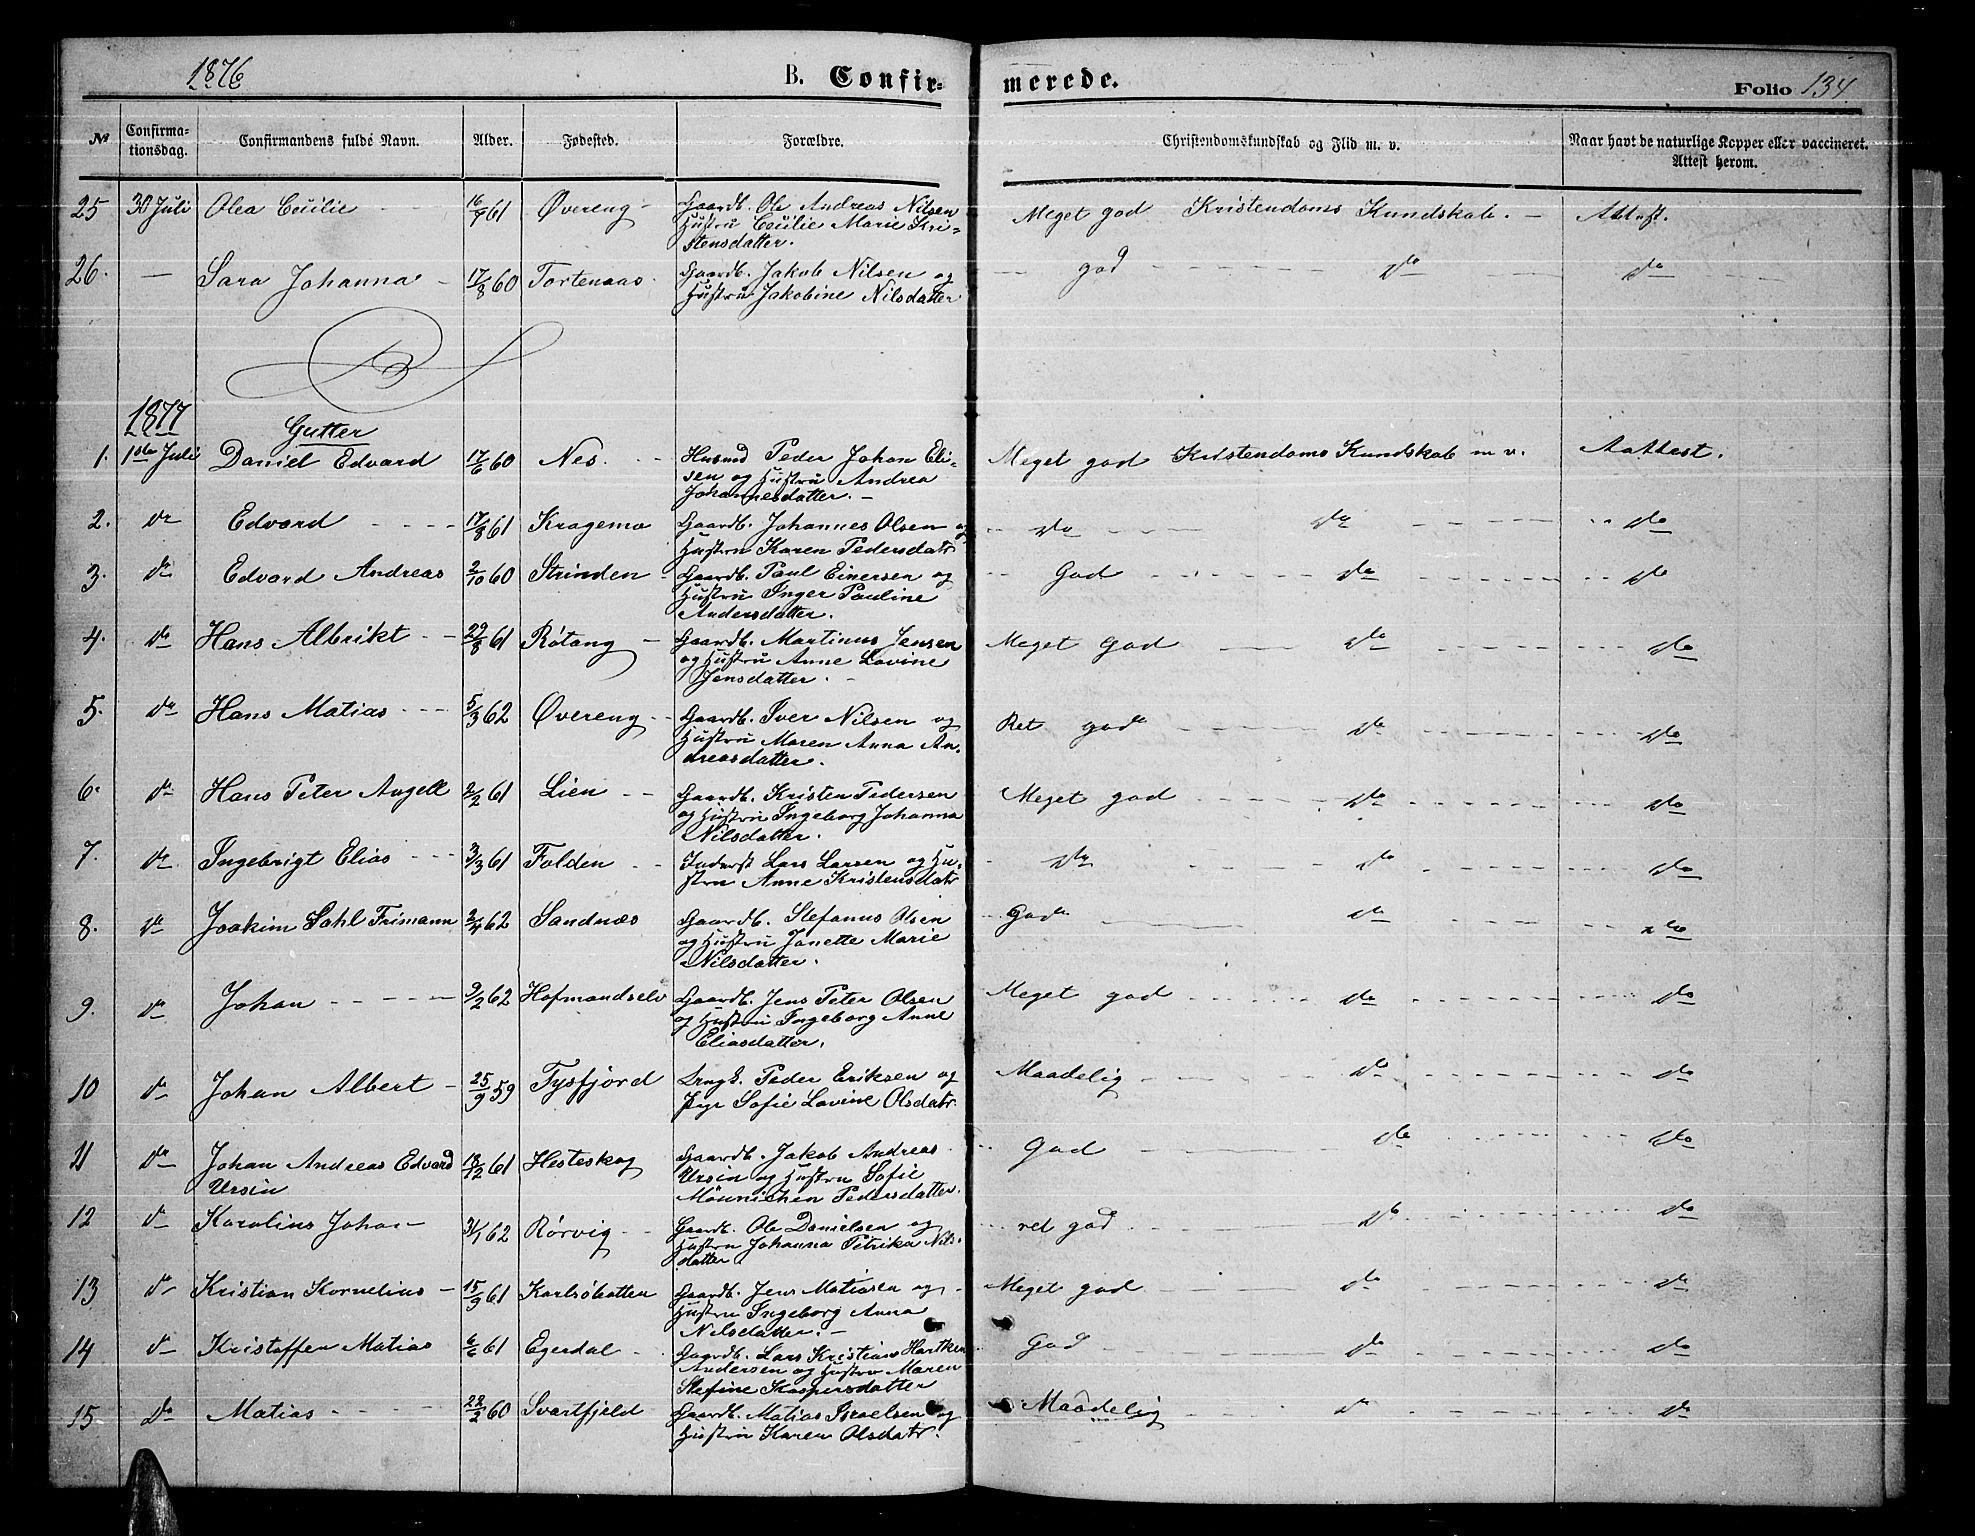 1876 B. Confir= merede. Folio 134
№ Confirma=tionsdag. Confirmandens fulde Navn. Alder. Fødested. Forældre. Christendomskundskab og Flid m. v. Naar havt de naturlige Kopper eller vaccineret. Attest herom.
25 30 Juli Olea Cecilie 16/9 61 Øvereng Gaardb. Ole Andreas Nilsen Meget god Kristendoms Kundskab. Attest.
Hustru Cecilie Marie Kri=
stensdatter.
26. — Sara Johanna 17/8 60 Tortenaas. Gaardb. Jakob Nilsen og god do do
Hustru Jakobine Nilsdatter
1877
Gutter
1. 1ste Juli Daniel Edvard 17/6 60 Nes. Husmd Peder Johan Eli= Meget god Kristendoms Kundskab m v. Aattest.
sen og Hustru Andrea
Johannesdatter. —
2. do Edvard 17/8 61 Kragemo Gaardb. Johannes Olsen og do do do
Hustru Karen Pedersdatr
3. do Edvard Andreas 2/10 60 Strinden Gaardb. Paul Einersen og God do do
Hustru Inger Pauline
Andersdatter.
4. do Hans Albrikt 29/8 61 Røtang Gaardb. Martinus Jensen Meget God do do
og Hustru Anne Lovine
Jensdatter.
5. do Hans Matias 5/3 62 Øvereng Gaardb. Iver Nilsen og Ret god do do
Hustru Maren Anna An=
dreasdatter.
6. do Hans Peter Angell 2/2 61 Lien Gaardb. Kristen Pedersen Meget god do do
og Hustru Ingeborg Johanna
Nilsdatter.
7. do Ingebrigt Elias 3/3 61 Folden Inderst Lars Larsen og Hu= do do do
stru Anne Kristensdatr
8. do Joakim Dahl Frimann 2/4 62 Sandnæs Gaardb. Stefanus Olsen God do do
og Hustru Janette Marie
Nilsdatter.
9. do Johan 9/2 62 Hofmandselv Gaardb. Jens Peter Olsen Meget god do do
og Hustru Ingeborg Anne
Eliasdatter.
10 do Johan Albert 25/9 59 Tysfjord Drngk. Peder Eriksen og Maadelig do do
Pige Sofie Lovine Olsdatr
11 do Johan Andreas Edvard 13/12 61 Hesteskog Gaardb. Jakob Andreas God do do
Ursin Ursin og Hustru Sofie
Mönnichen Pedersdatter.
12 do Karolius Johan 31/1 62 Rørvig Gaardb. Ole Danielsen og ret god do do
Hustru Johanna Petrika Nils=
datter
13 do Kristian Kornelius 15/9 61 Karlsøbotten Gaardb. Jens Matiasen og Meget god do do
Hustru Ingeborg Anna
Nilsdatter. —
14 do Kristoffer Matias 6/6 61 Egerdal Gaardb. Lars Kristian God do do
Andersen og Hustru Maren
Stefine Kaspersdatter
15 do Matias 22/2 60 Svartfjeld Gaardb. Matias Israelsen og Maadelig do do
Hustru Karen Olsdatr.